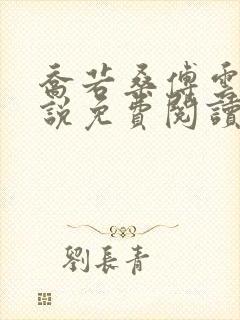 喬若桑傅雲
說免費閱讀
劉長青